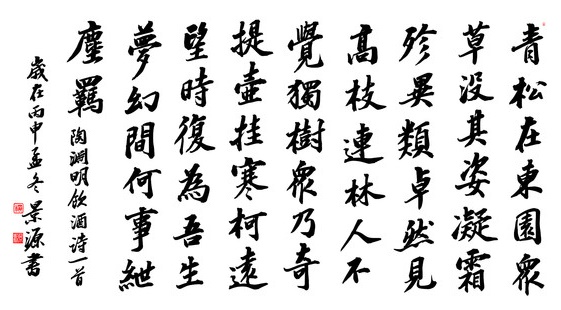 青松在東園眾
草没其姿凝霜
殄異類卓然見
高枝連林人不
覺獨樹眾乃奇
提壺挂寒柯遠
望時復為吾生
夢幻間何事紲
塵羈 陶淵明飲酒诗一首
歲在丙申孟冬景源書